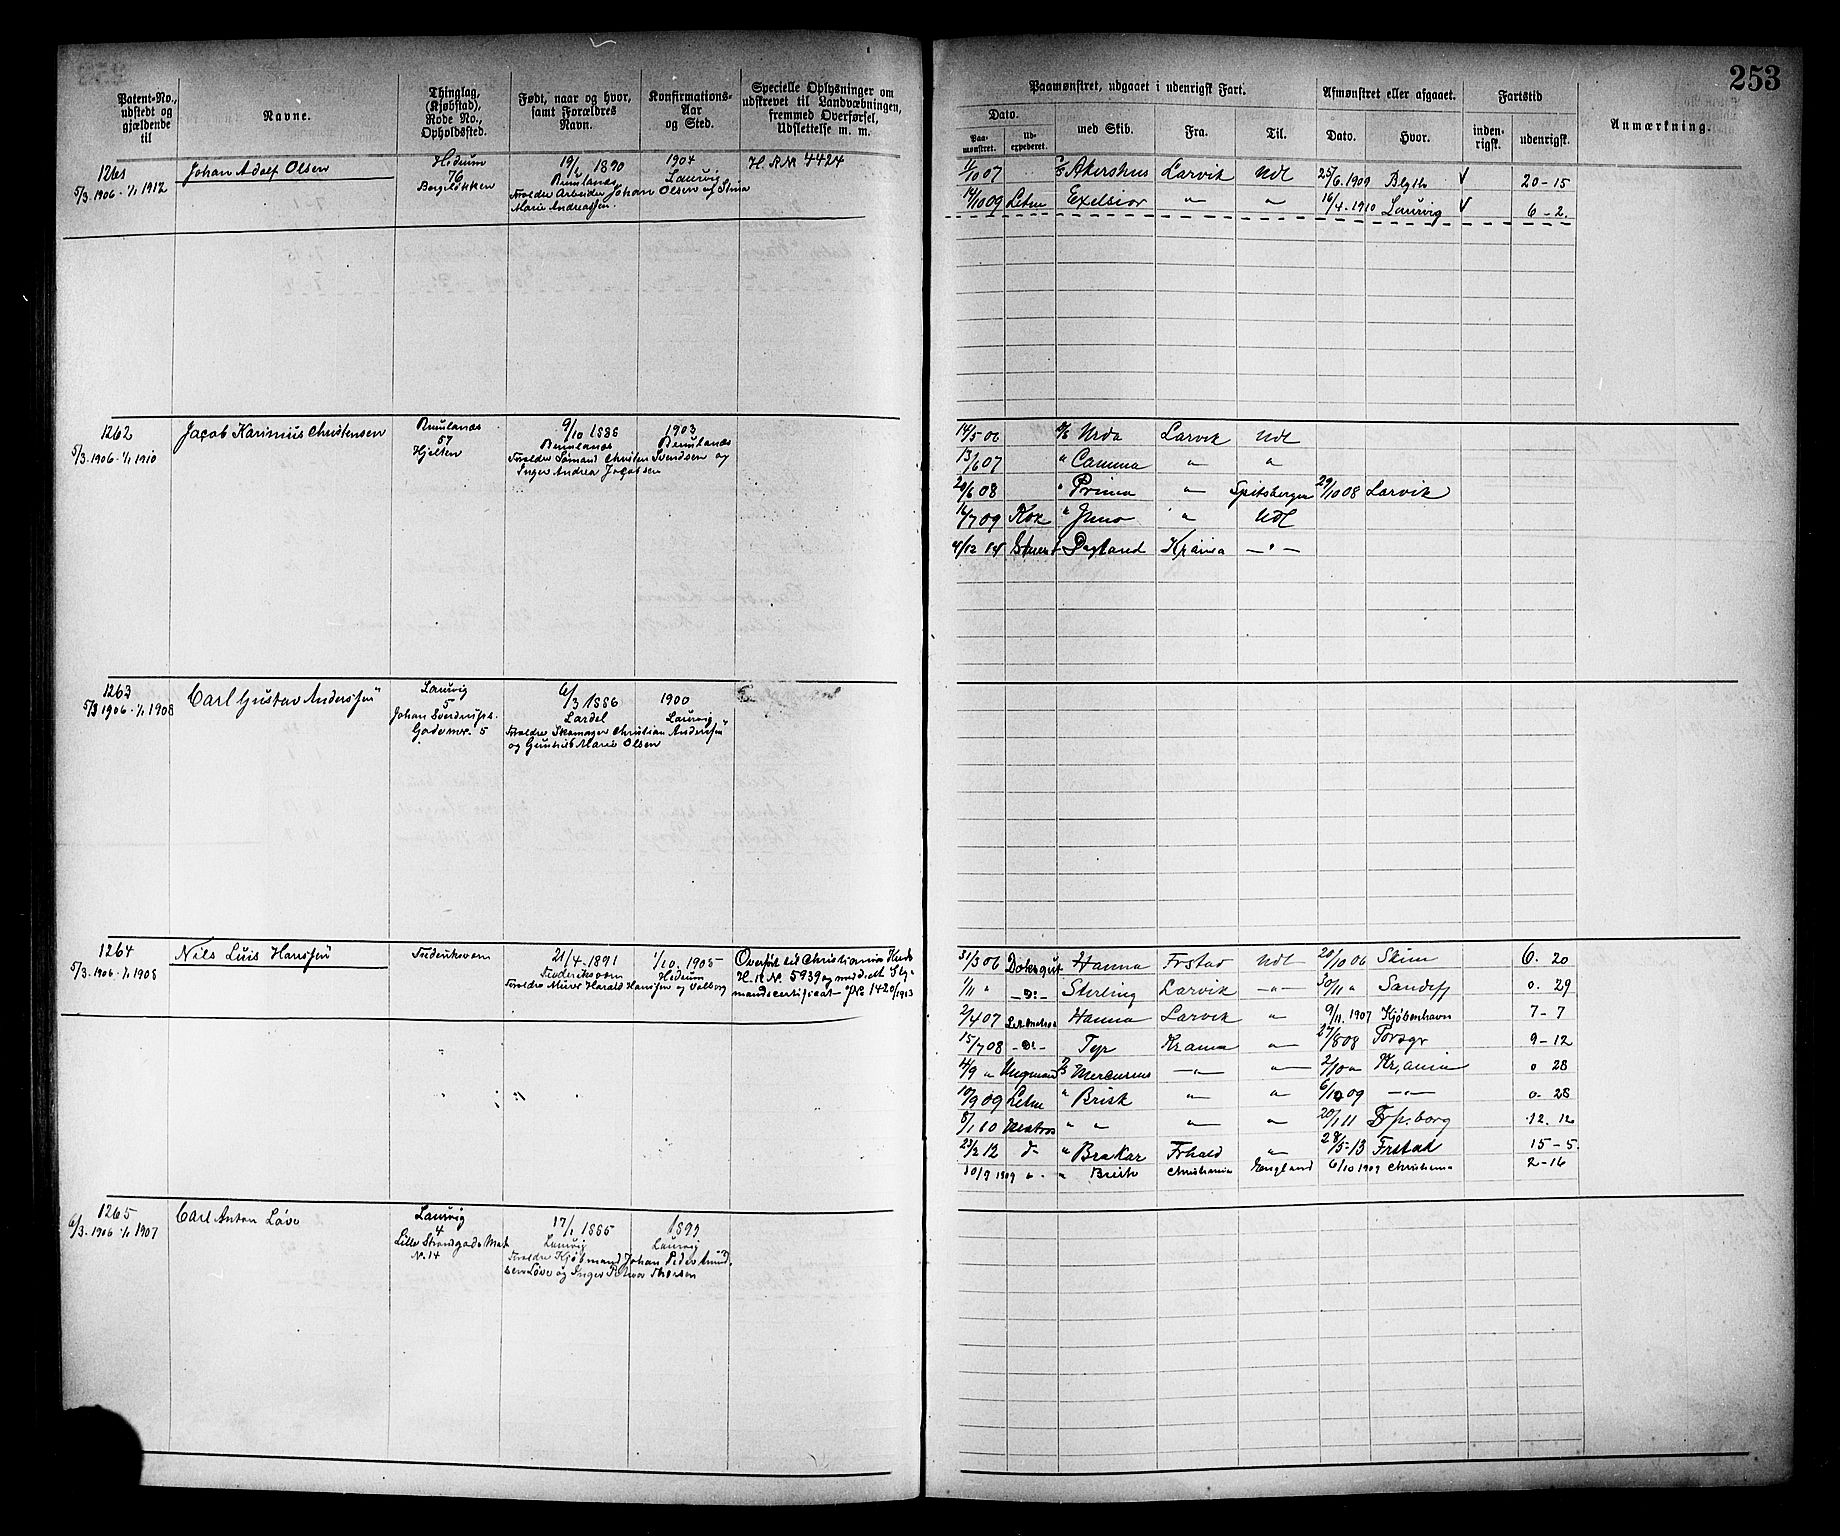 253
Patent-No., udstedt og gjældende til
Navne.
Thinglag, (Kjøbstad), Rode No., Opholdssted.
Født, naar og hvor, samt Forældres Navn.
Konfirmations-Aar og Sted.
Specielle Oplysninger om udskrevet til Landvæbningen, fremmed Overførsel, Udslettelse m. m.
Paamønstret, udgaaet i udenrigsk Fart.
Dato.
Paamønstret.
Udexpederet.
med Skib.
Fra.
Til.
Afmønstret eller afgaaet.
Dato.
Hvor.
Fartstid
indenrigsk.
udenrigsk.
Anmærkning.
1261
5/3.1906 - 1/1 1912
Johan Adolf Olsen
Hedrum
76
19/2 1890
Brunlanæs
Forældre Arbeider Johan Olsen og Stina
Marie Andreassen.
1904
Laurvig
H. R. N° 4424
1/10 07 Akershus Larvik Udl 25/6.1909 Blyth V 20-15
14/10 09 Letm Exelsior " " 16/4.1910 Laurvig V 6-2.
1262
5/3.1906 - 1/1 1910
Jacob Karinius Christensen
Brunlanæs
57
Hjelten
9/10 1886
Brunlanæs
Forældre Sømand Christen Svendsen og
Inger Andrea Jacobsen
1903
Brunlanæs
14/5 06 Urda Larvik Udl
13/6 07 " Camma " "
20/6 08 " Prima " Spitsbergen 29/10 08 Larvik
16/7 09 Kok " Juno " Udl
4/12 14 Dagland Kr.ania -"-
1263
5/3 1906 - 1/1 1908
Carl Gustav Anderssen
Laurvig
5
Johan Sverdrups.
Gade nr. 5
6/3 1886
Lardal
Forældre Skomager Christian Anderssen
og Gunhild Marie Olsen
1900
Laurvig
1264
5/3.1906 - 1/1 1908
Nils Luis Hanssen
Frederiksværn
21/4.1891
Frederiksværn
Forældre Murer Harald Hanssen og Valborg
1/10.1905
Hedrum
Overført til Christiania Kreds
H. R. N°. 5939 og meddelt Sty-
mandscertifikat N° 1420/1913
31/3 06 Dæksgut Hanna Frstad Udl 20/10 06 Skien 6. 20
1/11 " -D:- Sterling Larvik -"- 30/11 " Sandefj 0. 29
2/4 07 Let Matros Hanna Larvik " 9/11.1907 Kjøbenhavn 7-7
15/7 08 -D:- Tyr Kr.ania " 27/8 08 Porsgr 9-12
4/9 " Ungmand Mercurius -"- -"- 2/10 " Kr,ania 0 28
10/9 09 Letm " Brisk " " 6/10 09 -"- 0. 28
8/1 10 Matros " " " " 20/1 11 Frp.borg 12. 12
23/2 12 d- " Brakar Frhald " 28/5-13 Frstad 15-5
10/9 1909 " " Brisk Christiania England 6/10 1909 Christiania 2-16
1265
6/3.1906 - 1/1 1907
Carl Anton Løve
Laurvig
4
Lille Strandgade Mat
N° 14
17/1 1885
Laurvig
Forældre Kjøbmand Johan Peder Amund-
sen Løve og Inger Petrea Thorsen
1899
Laurvig